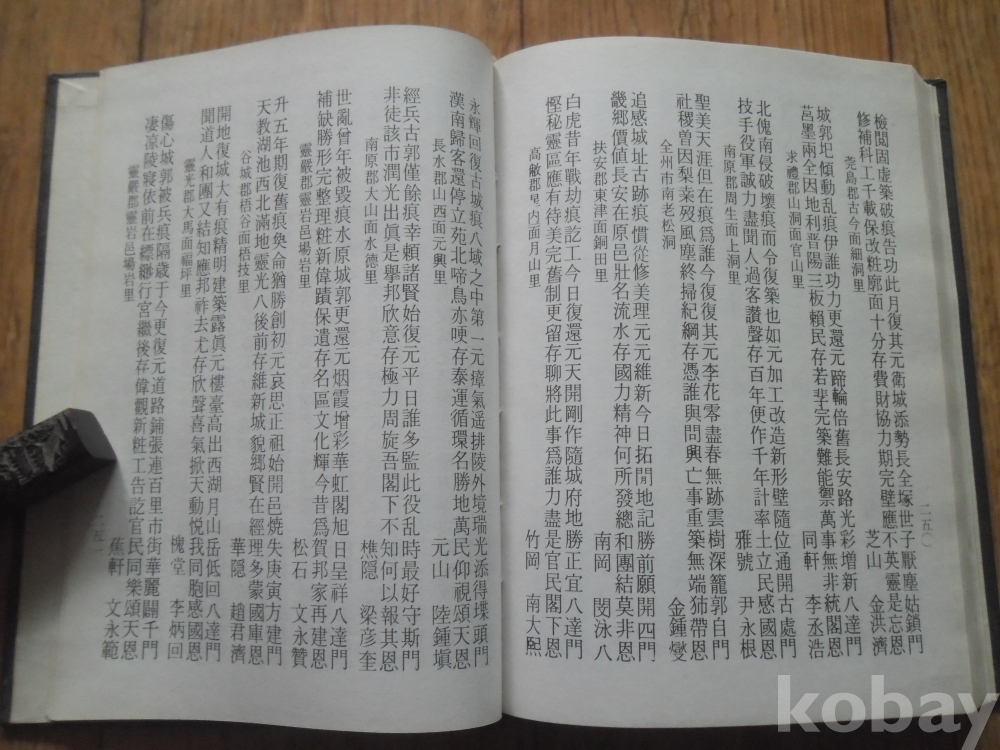 二五〇
檢閱固虛築破痕告功此月復其元衛城添勢長全塚世子厭塵姑鎖門
修補科工千載保改粧廓面十分存費財協力期完壁應不英靈是忘恩
莞島郡古今面細洞里 芝山 金洪濟
城郭圯傾動亂痕伊誰功力更還元蹄輪倍舊長安路光彩增新八達門
莒墨兩全因地利晋陽三板賴民存若非完築難能禦萬事無非統閣恩
求禮郡山洞面官山里 同軒 李丞浩
北傀南侵破壞痕而令復築也如元加工改造新形壁隨位通開古處門
技手役軍誠力盡聞人過客讚聲存百年便作千年計率土立民感國恩
南原郡周生面上洞里 雅號 尹永根
聖美天涯但在痕爲誰今復復其元李花零盡春無跡雲樹深籠郭自門
社稷曾因梨業歿風塵終掃紀綱存憑誰與問興亡事重築無端沛帶恩
全州市南老松洞 金鍾燮
追感城址古跡痕慣從修美理元元維新今日拓開地記勝前願開四門
畿鄉價値長安在原邑壯名流水存國力精神何所發總和團結莫非恩
扶安郡東津面銅田里 南岡 閔泳八
白虎昔年戰劫痕訖工今日復還元天開剛作隨城府地勝正宜八達門
慳秘靈區應有待美完舊制更留存聊將此事爲誰力盡是官民閣下恩
高敞郡星内面月山里 竹岡 南大熙
永輝回復古城痕八域之中第一元瘴氣遥排陵外境瑞光添得堞頭門
漢南歸客還停立苑北啼鳥亦哽存泰運循環名勝地萬民仰視頌天恩
長水郡山西面元興里 元山 陸鍾塡
經兵古郭僅餘痕幸賴諸賢始復元平日誰多監此役乱時最好守斯門
非徒該市潤光出眞是學邦欣意存極力周旋吾閣下不知何以報其恩
南原郡大山面水德里 樵隱 梁彦奎
世亂曾年被毁痕水原城郭更還元烟霞增彩華虹閣旭日呈祥八達門
補缺勝形完整理粧新偉蹟保遺存名區文化輝今昔爲賀邦家再建恩
靈嚴郡靈岩邑場岩里 松石 文永贊
升五年期復舊痕奐侖猶勝創初元哀思正祖始開邑燒失庚寅方建門
天教湖池西北滿地靈光八後前存維新城貌鄉賢在經理多蒙國庫恩
谷城郡梧谷面梧技里 華隱 趙君濟
開地復城大有痕精明建築露眞元樓臺高出西湖月山岳低回八達門
聞道人和團又結知應邦祚去尤存欣聲喜氣掀天動悅我同胞感國恩
靈光郡大馬面福坪里 槐堂 李炳回
傷心城郭被兵痕隔歲于今更復元道路鋪張連百里市街華麗闢千門
凄涼陵寢依前在縹緲行宮繼後存偉觀新粧工告訖官民同樂頌天恩
靈嚴郡靈岩邑場岩里 蕉軒 文永範
二五一
kobay